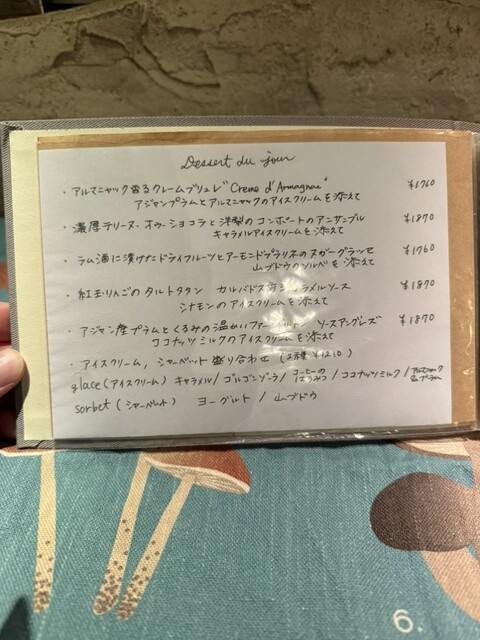 Dessert du jour
・アルマニャック香るクレームブリュレ "Creme d'Armagnac" ¥1760
アジャンプラムとアルマニャックのアイスクリームを添えて
・濃厚テリーヌ・オゥ・ショコラと洋梨のコンポートのアンサンブル ¥1870
キャラメルアイスクリームを添えて
・ラム酒に漬けたドライフルーツとアーモンドプラリネのヌガーグラッセ ¥1760
山ブドウのソルベを添えて
・紅玉りんごのタルトタタン カルバドス香るキャラメルソース ¥1870
シナモンのアイスクリームを添えて
・アジャン産プラムとくるみの温かいファーブルトン ソースアングレーズ ¥1870
ココナッツミルクのアイスクリームを添えて
・アイスクリーム, シャーベット盛り合わせ (2種 ¥1210)
glace (アイスクリーム) キャラメル / ゴルゴンゾーラ / コーヒーの はちみつ / ココナッツミルク / アルマニャック &プラム
sorbet (シャーベット) ヨーグルト / 山ブドウ
6.